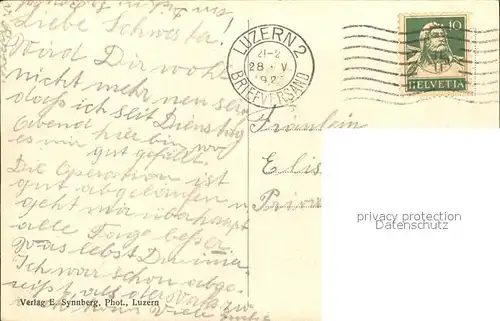 Liebe Schwester!
Wird Dir wohl
nicht mehr neu sein
daß ich seit Dienstag
Abend hier bin wo
es mir gut gefällt.
Die Operation ist
gut abgelaufen u.
geht mir überhaupt
alle Tage besser.
Was lebst Du immer
Ich war schon abge-
reist, als
Viele
Verlag E. Synnberg, Phot., Luzern
LUZERN 2
21-2
28. V.
BRIEFVERSAND
10
HELVETIA
Fräulein
Elis
Priva
privacy protection
Datenschutz